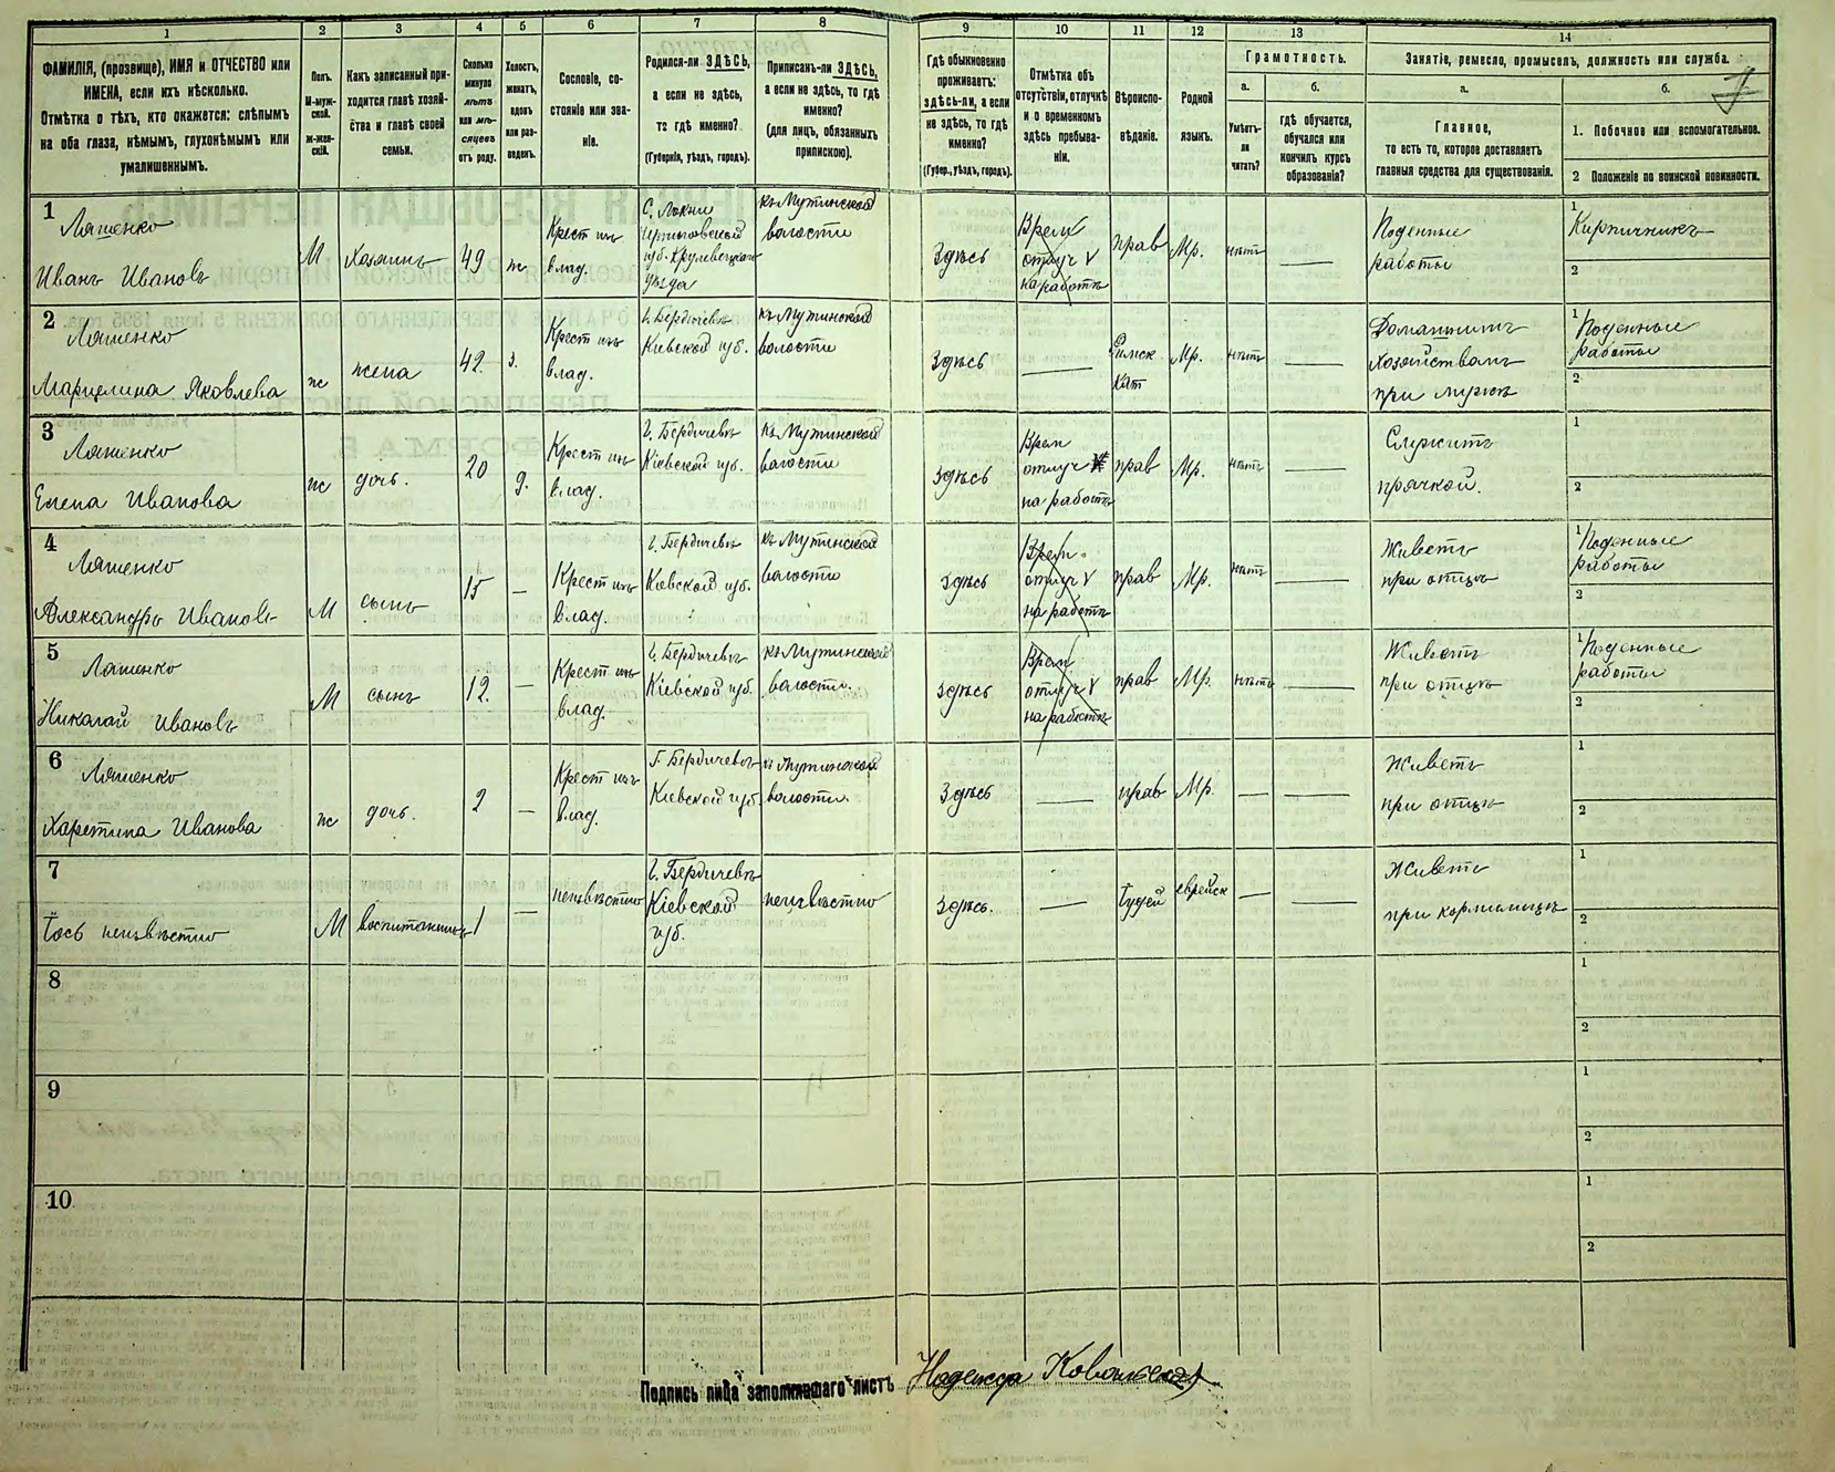 1
2
3
4
5
6
7
8
9
10
11
12
13
14
ФАМИЛІЯ, (прозвище), ИМЯ и ОТЧЕСТВО или
ИМЕНА, если ихъ нѣсколько.
Отмѣтка о тѣхъ, кто окажется: слѣпымъ
на оба глаза, нѣмымъ, глухонѣмымъ или
умалишеннымъ.
Полъ.
М-муж-
ской.
Ж-жен-
скій.
Какъ записанный при-
ходится главѣ хозяй-
ства и главѣ своей
семьи.
Сколько
минуло
лѣтъ
или мѣ-
сяцевъ
отъ роду.
Холостъ,
женатъ,
вдовъ
или раз-
веденъ.
Сословіе, со-
стояніе или зва-
ніе.
Родился-ли ЗДѢСЬ,
а если не здѣсь,
то гдѣ именно?
(Губернія, уѣздъ, городъ).
Приписанъ-ли ЗДѢСЬ,
а если не здѣсь, то гдѣ
именно?
(для лицъ, обязанныхъ
припискою).
Гдѣ обыкновенно
проживаетъ:
здѣсь-ли, а если
не здѣсь, то гдѣ
именно?
(Губер., уѣздъ, городъ).
Отмѣтка объ
отсутствіи, отлучкѣ
и о временномъ
здѣсь пребыва-
ніи.
Вѣроиспо-
вѣданіе.
Родной
языкъ.
Грамотность.
а.
Умѣетъ-
ли
читать?
б.
гдѣ обучается,
обучался или
кончилъ курсъ
образованія?
Занятіе, ремесло, промыселъ, должность или служба.
а.
Главное,
то есть то, которое доставляетъ
главныя средства для существованія.
б.
1. Побочное или вспомогательное.
2 Положеніе по воинской повинности.
1
Ляшенко
Иванъ Ивановъ
М
Хозяинъ
49
ж
Крест изъ
влад.
С. Локни
Черниговской
губ. Кролевецкаго
уѣзда
къ Мутинской
волости
Здѣсь
Врем
отлуч
на работѣ
прав
Мр.
нѣтъ
Поденные
работы
1
Кирпичникъ
2
2
Ляшенко
Марцелина Яковлева
ж
жена
42
з.
Крест изъ
влад.
г. Бердичевъ
Киевской губ.
къ Мутинской
волости
Здѣсь
Римск
Кат
Мр.
нѣтъ
Домашнимъ
хозяйствомъ
при мужѣ
1
Поденные
работы
2
3
Ляшенко
Елена Иванова
ж
дочь.
20
д.
Крест изъ
влад.
г. Бердичевъ
Кіевской губ.
къ Мутинской
волости
Здѣсь
Врем
отлуч
на работѣ
прав
Мр.
нѣтъ
Служитъ
прачкой.
1
2
4
Ляшенко
Александръ Ивановъ
М
сынъ
15
Крест изъ
влад.
г. Бердичевъ
Кіевской губ.
къ Мутинской
волости
Здѣсь
Врем.
отлуч
на работѣ
прав
Мр.
нѣтъ
Живетъ
при отцѣ
1
Поденные
работы
2
5
Ляшенко
Николай Ивановъ
М
сынъ
12.
Крест изъ
влад.
г. Бердичевъ
Кіевской губ.
къ Мутинской
волости.
Здѣсь
Врем
отлуч
на работѣ
прав
Мр.
нѣтъ
Живетъ
при отцѣ
1
Поденные
работы
2
6
Ляшенко
Харетина Иванова
ж
дочь.
2
Крест изъ
влад.
Г. Бердичевъ
Киевской губ.
къ Мутинской
волости.
Здѣсь
прав
Мр.
Живетъ
при отцѣ
1
2
7
неизвѣстно
М
воспитанникъ
1
неизвѣстно
г. Бердичевъ
Кіевской
губ.
неизвѣстно
Здѣсь.
Іудей
еврейск
Живетъ
при кормилицѣ
1
2
8
1
2
9
1
2
10
1
2
Подпись лица заполнившаго листъ Надежда